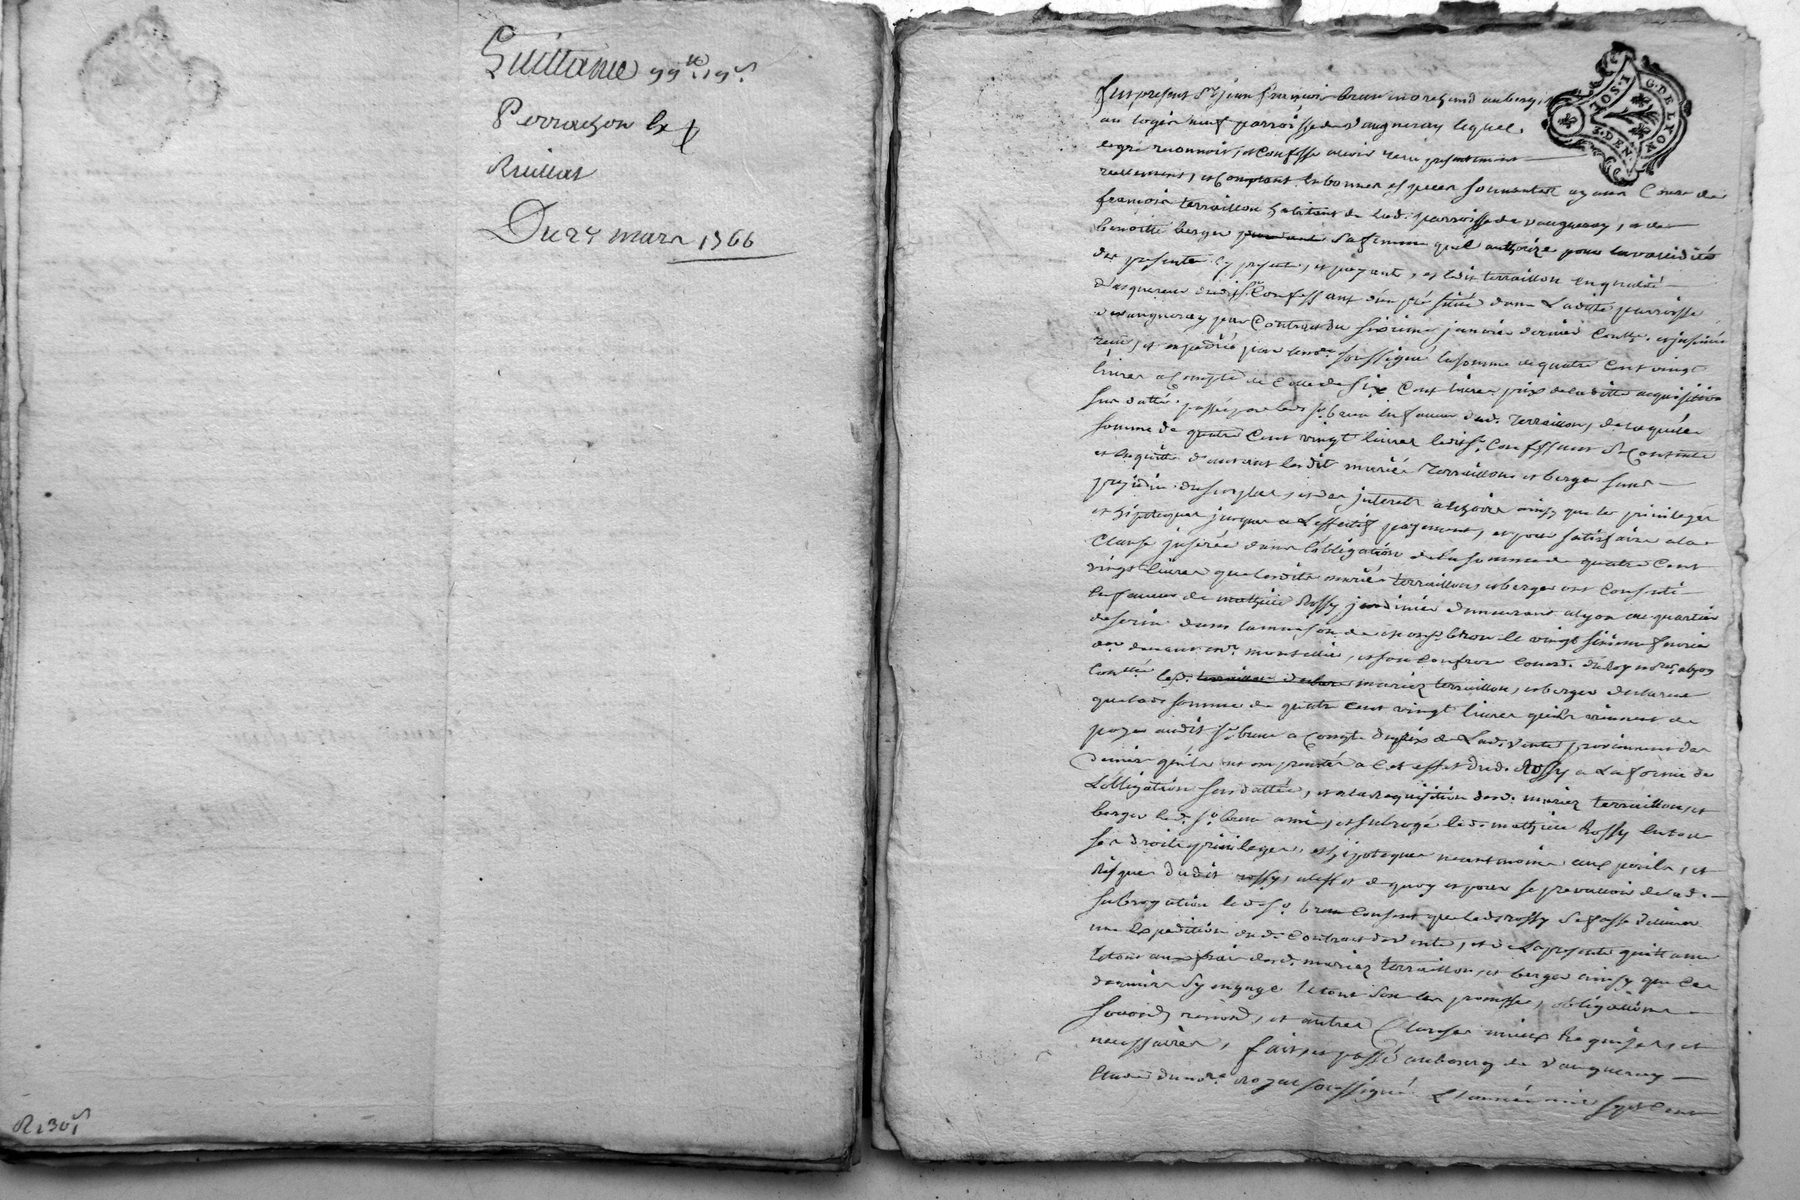 Quittance 99tt 19s
Perrachon
Du 24 mars 1766
R 1 30s
G. DE LYON
1. SOL
3. DEN.
fut present Sr jean françois brun marchand auberg.
au logis neuf parroisse de Vaugneray lequel
de gré reconnoit, et Confesse avoir receu presentement
reellement, et Comptant en bonnes especes sonnantes ayant Cours de
françois terraillon habitant de lad. parroisse de vaugneray, et de
benoitte berger sa femme quil authorize pour la validité
des presentes cy presente, et payants, et ledit terraillon en qualité
d'acquereur dudit Sr Confessant d'un pré situé dans Laditte parroisse
de vaugneray par Contract du sixieme janvier dernier Contlé. et insinué
receu, et expedié par le nore. soussigné la somme de quatre Cent vingt
livres a Compte de Celle de six Cent livres prix de laditte acquisition
sus dattée passée par led. sr. brun en faveur dud. terraillon, de laquelle
somme de quatre Cent vingt livres ledit sr. Confessant se Contente
et en quitte d'autant lesdit mariés terraillon et berger sans
prejudice du surplus, et des interets a échoir ainsy que des privileges
et hipoteques jusques a L'effectif payement, et pour satisfaire a la
Clause inserée dans l'obligation de la somme de quatre Cent
vingt livres que lesdits mariés terraillon, et berger ont Consenti
en faveur de mathieu Rossy jardinier demeurant a lyon au quartier
de serin dans la maison de le vingt sixieme fevrier
der. devant me. et son Confrere Coners. du Roy nores. a lyon
Contllé. lesd. mariez terraillon, et berger declarent
que lad. somme de quatre Cent vingt livres quils viennent de
payer audit sr. brun a Compte du prix de Lad. vente proviennent des
deniers quils ont empruntés a Cet effet dud. Rossy a La forme de
L'obligation sus dattée, et a la requisition desd. mariez terraillon, et
berger led. sr. brun a mis, et subrogé led. mathieu Rossy en tous
ses droits privileges, et hipoteques neantmoins aux perils, et
risques dudit rossy, a l'effet de quoy et pour se prevalloir de lad.
subrogation led. sr. brun Consent que led. rossy se fasse delivrer
une expedition dud. Contract de vente, et de La presente quittance
le tout aux frais desd. mariez terraillon, et berger ainsy que Ces
derniers sy engage le tout sous les promesses, obligations
renond, et autres Clauses mieux Requises, et
necessaires, fait, et passé au bourg de Vaugneray
Etude du nore. royal soussigné L'année mil sept Cent